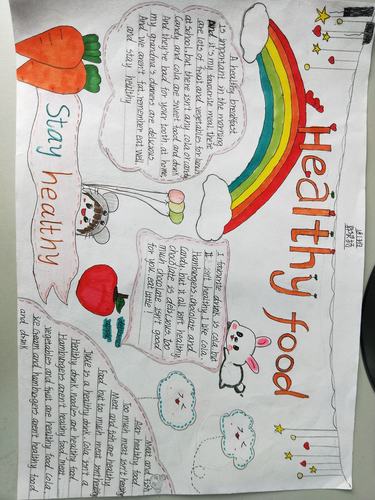 Healthy food
A healthy breakfast
is important in the morning
and it's my favorite meal. there
are lots of fruit and vegetables for lunch
at school, but there isn't any cola or candy
Candy and cola are sweet food and drink
And they're bad for your tooth. at home,
my grandma's dinners are delicious
And we aren't fat. remember eat well
and stay healthy
I favorite drink is cola, but
it isn't healthy. I like cola,
Hamburgers, chocolate and
Candy. but it all isn't healthy
chocolate is delicious. too
much chocolate isn't good
for you. eat little!
Stay healthy
Meat and fish
Are healthy food.
too much meat isn't healthy
Meat and fish are healthy
food. but too much meat isn't healthy
Juice is a healthy drink. Cola isn't a
healthy drink. Noodles are healthy food.
Hamburgers aren't healthy food.
vegetables and fruit are healthy food. Cola
ice cream and humbogers aren't healthy food
and drink